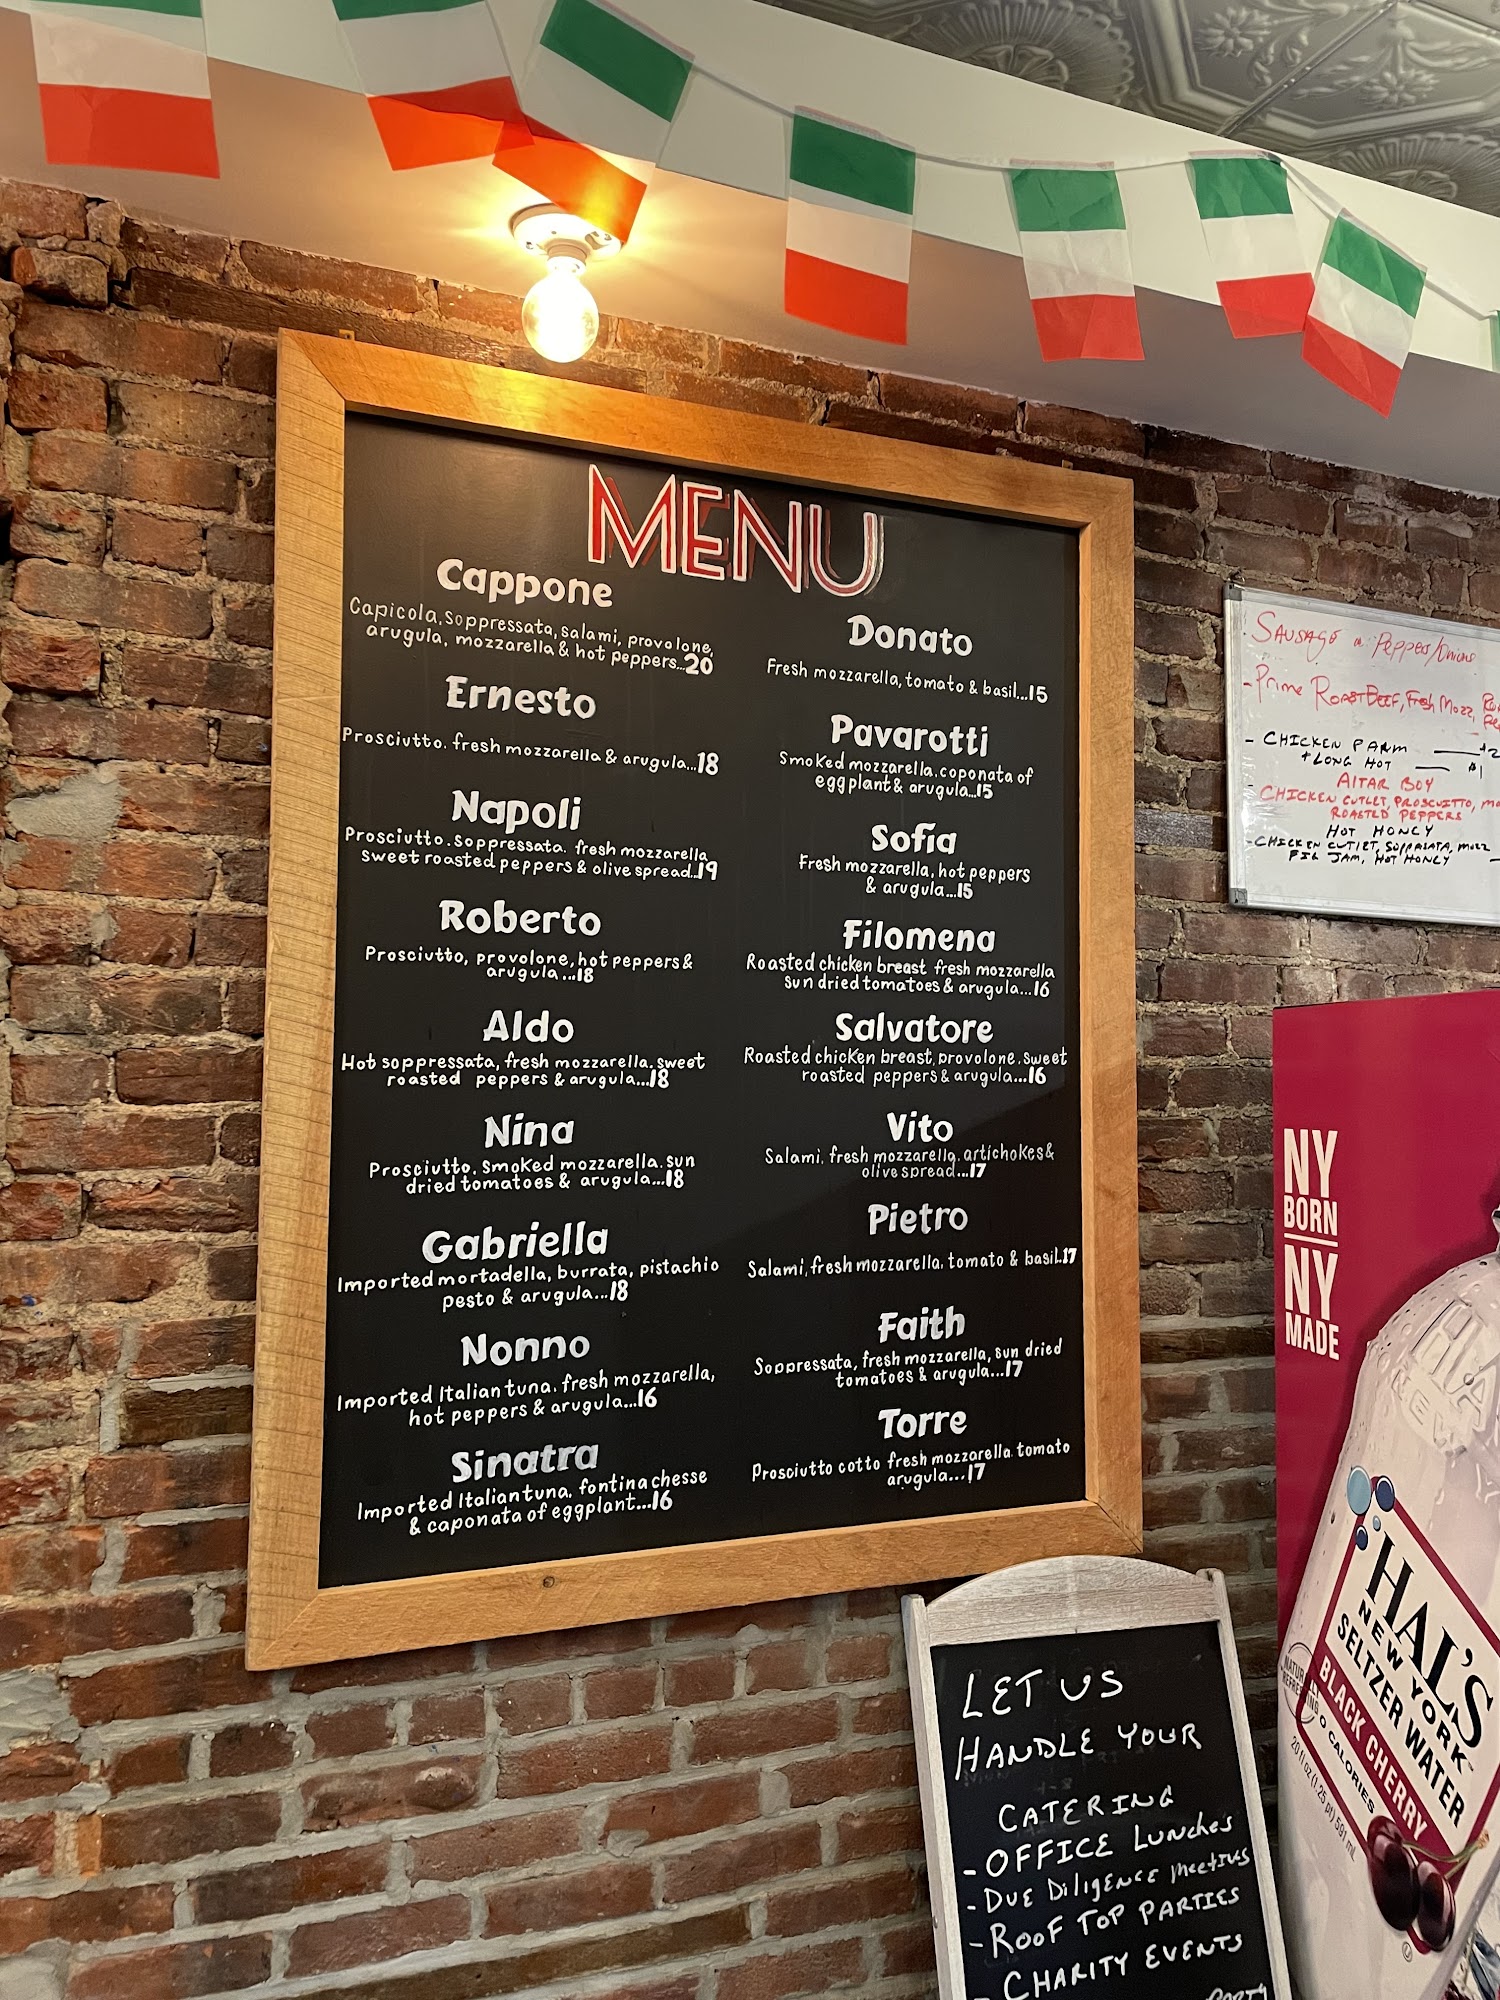 MENU
Cappone
Capicola, soppressata, salami, provolone,
arugula, mozzarella & hot peppers...20
Ernesto
Prosciutto. fresh mozzarella & arugula...18
Napoli
Prosciutto. soppressata. fresh mozzarella
sweet roasted peppers & olive spread..19
Roberto
Prosciutto, provolone, hot peppers &
arugula...18
Aldo
Hot soppressata, fresh mozzarella. sweet
roasted peppers & arugula...18
Nina
Prosciutto. smoked mozzarella. sun
dried tomatoes & arugula...18
Gabriella
Imported mortadella, burrata, pistachio
pesto & arugula...18
Nonno
Imported Italian tuna. fresh mozzarella,
hot peppers & arugula...16
Sinatra
Imported Italian tuna. fontina chesse
& caponata of eggplant...16
Donato
Fresh mozzarella, tomato & basil...15
Pavarotti
Smoked mozzarella. coponata of
eggplant & arugula...15
Sofia
Fresh mozzarella, hot peppers
& arugula...15
Filomena
Roasted chicken breast fresh mozzarella
sun dried tomatoes & arugula...16
Salvatore
Roasted chicken breast, provolone. sweet
roasted peppers & arugula...16
Vito
Salami. fresh mozzarella. artichokes &
olive spread...17
Pietro
Salami, fresh mozzarella. tomato & basil..17
Faith
Soppressata, fresh mozzarella, sun dried
tomatoes & arugula...17
Torre
Prosciutto cotto fresh mozzarella tomato
arugula...17
SAUSAGE Peppers/Onions
- Prime ROAST BEEF, Fresh Mozz,
- CHICKEN PARM
+ LONG HOT $1
AlTAR BOY
CHICKEN CUTLET, PROSCUITTO,
ROASTED PEPPERS
HOT HONEY
- CHICKEN CUTLET, SOPPRASATA, MOZZ
FIG JAM, HOT HONEY
NY
BORN
NY
MADE
HAL'S
NEW YORK
SELTZER WATER
BLACK CHERRY
0 CALORIES
20 fl oz (1.25 pt) 591 mL
LET US
HANDLE YOUR
CATERING
- OFFICE Lunches
- DUE DiligENCE Meetings
- ROOF TOP PARTIES
- CHARITY EVENTS
PARTY